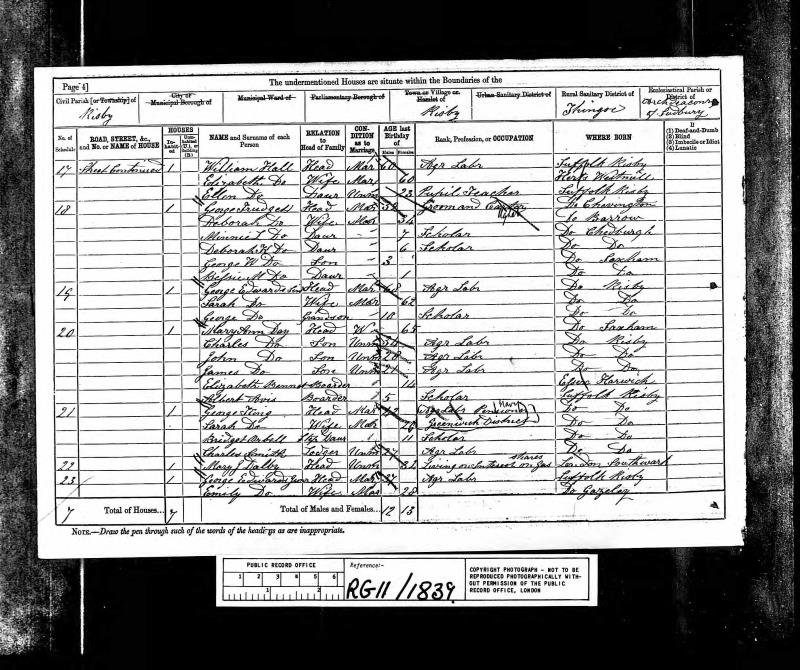 Page 4]
The undermentioned Houses are situate within the Boundaries of the
Civil Parish [or Township] of
Risby
City or Municipal Borough of
Municipal Ward of
Parliamentary Borough of
Town or Village or Hamlet of
Risby
Urban Sanitary District of
Rural Sanitary District of
Thingoe
Ecclesiastical Parish or District of
Archdeaconry of Sudbury
No. of Schedule
ROAD, STREET, &c., and No. or NAME of HOUSE
HOUSES
Inhabited
Uninhabited (U.), or Building (B.)
NAME and Surname of each Person
RELATION to Head of Family
CONDITION as to Marriage
AGE last Birthday of
Males
Females
Rank, Profession, or OCCUPATION
WHERE BORN
If
(1) Deaf-and-Dumb
(2) Blind
(3) Imbecile or Idiot
(4) Lunatic
17 Street Continued 1 William Hall Head Mar 60 Agr Labr Suffolk Risby
Elizabeth Do Wife Mar 60 Herts
Ellen Do Daur Unm 23 Pupil Teacher Suffolk Risby
18 1 George Trudgett Head Mar Groom and Do Chevington
Deborah Do Wife Mar 34 Do Barrow
Minnie Do Daur 7 Scholar Do Chedburgh
Deborah K Do Daur 6 Scholar Do Do
George W Do Son 3 Do Saxham
Bessie M Do Daur 1 Do Do
19 1 George Edwards Head Mar 68 Agr Labr Do Risby
Sarah Do Wife Mar 62 Do Do
George Do Grandson 10 Scholar Do Do
20 1 Mary Ann Day Head W 65 Do Saxham
Charles Do Son Unm 34 Agr Labr Do Risby
John Do Son Unm 28 Agr Labr Do Do
James Do Son Unm 21 Agr Labr Do Do
Elizabeth Bennet Boarder 14 Essex Harwich
Albert Avis Boarder 5 Scholar Suffolk Risby
21 1 George King Head Mar Agr Labr Navy Pensioner Do Do
Sarah Do Wife Mar Greenwich District Do Do
Bridget Arbell Daur 11 Scholar Do Do
Charles Smith Lodger Unm 27 Agr Labr Do Do
22 1 Mary J Dalby Head Unm 52 Living on Interest on Gas shares London Southwark
23 1 George Edwards Junr Head Mar 27 Agr Labr Suffolk Risby
Emily Do Wife Mar 28 Do Gazeley
7 Total of Houses... 7 Total of Males and Females... 12 13
NOTE.—Draw the pen through such of the words of the headings as are inappropriate.
PUBLIC RECORD OFFICE
1 2 3 4 5 6
1 2
Reference:-
RG11/1839
COPYRIGHT PHOTOGRAPH - NOT TO BE REPRODUCED PHOTOGRAPHICALLY WITHOUT PERMISSION OF THE PUBLIC RECORD OFFICE, LONDON